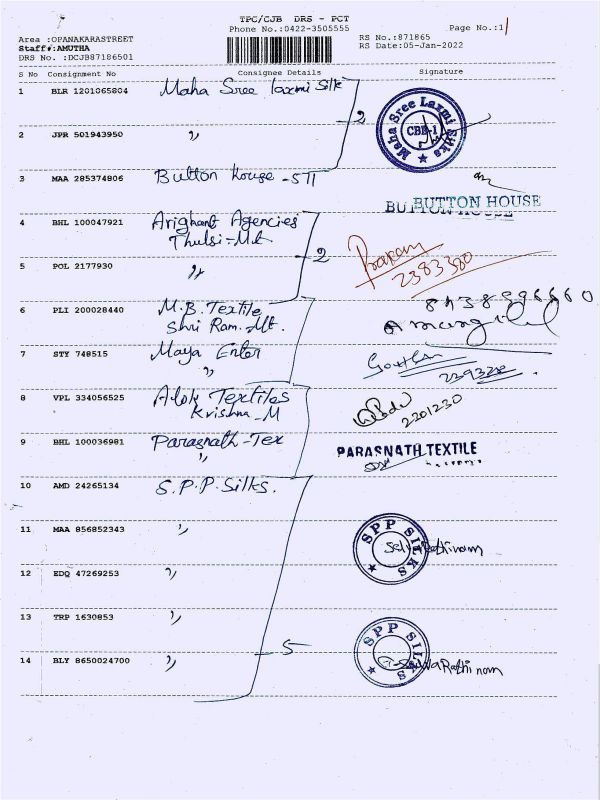 TPC/CJB DRS - PCT
Phone No.:0422-3505555
Page No.:1
Area :OPANAKARASTREET
Staff:AMUTHA
DRS No. :DCJB87186501
RS No.:871865
RS Date:05-Jan-2022
S No Consignment No Consignee Details Signature
1 BLR 1201065804 Maha Sree Laxmi Silk
2
Maha Sree Laxmi Silks
CBE-1
2 JPR 501943950 "
3 MAA 285374806 Button House - STI
BUTTON HOUSE
BUTTON HOUSE
4 BHL 100047921 Arighant Agencies
Thulsi-Mt
2
2383380
5 POL 2177930 "
6 PLI 200028440 M.B. Textile
Shri Ram. Mt.
7 STY 748515 Maya Enter
"
8 VPL 334056525 Alok Textiles
Krishna-M
2201230
9 BHL 100036981 Parasnath-Tex
"
PARASNATH TEXTILE
10 AMD 24265134 S.P.P. Silks.
11 MAA 856852343 "
SPP SILKS
12 EDQ 47269253 "
13 TRP 1630853 "
5
SPP SILKS
14 BLY 8650024700 "